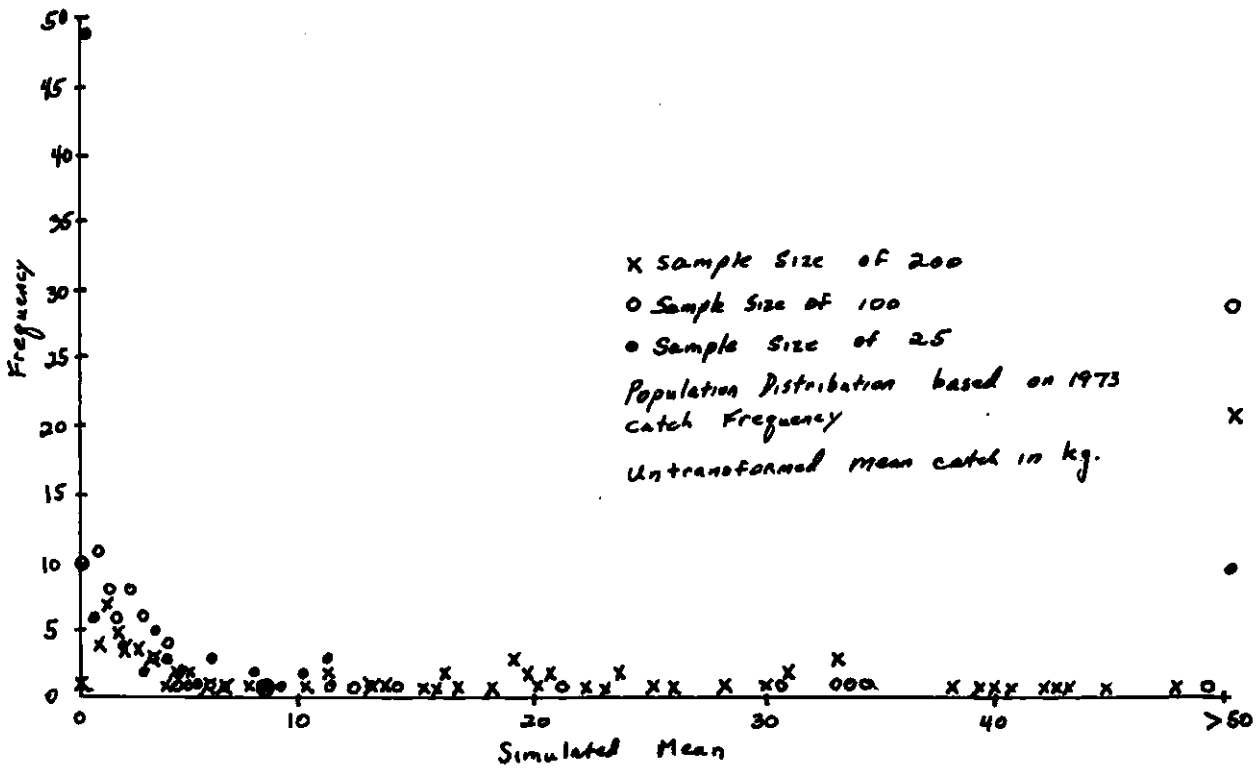 50
45
40
35
30
25
20
15
10
5
0
Frequency
x sample size of 200
o Sample size of 100
• Sample size of 25
Population Distribution based on 1973
catch Frequency
Untransformed mean catch in kg.
0 10 20 30 40 >50
Simulated Mean